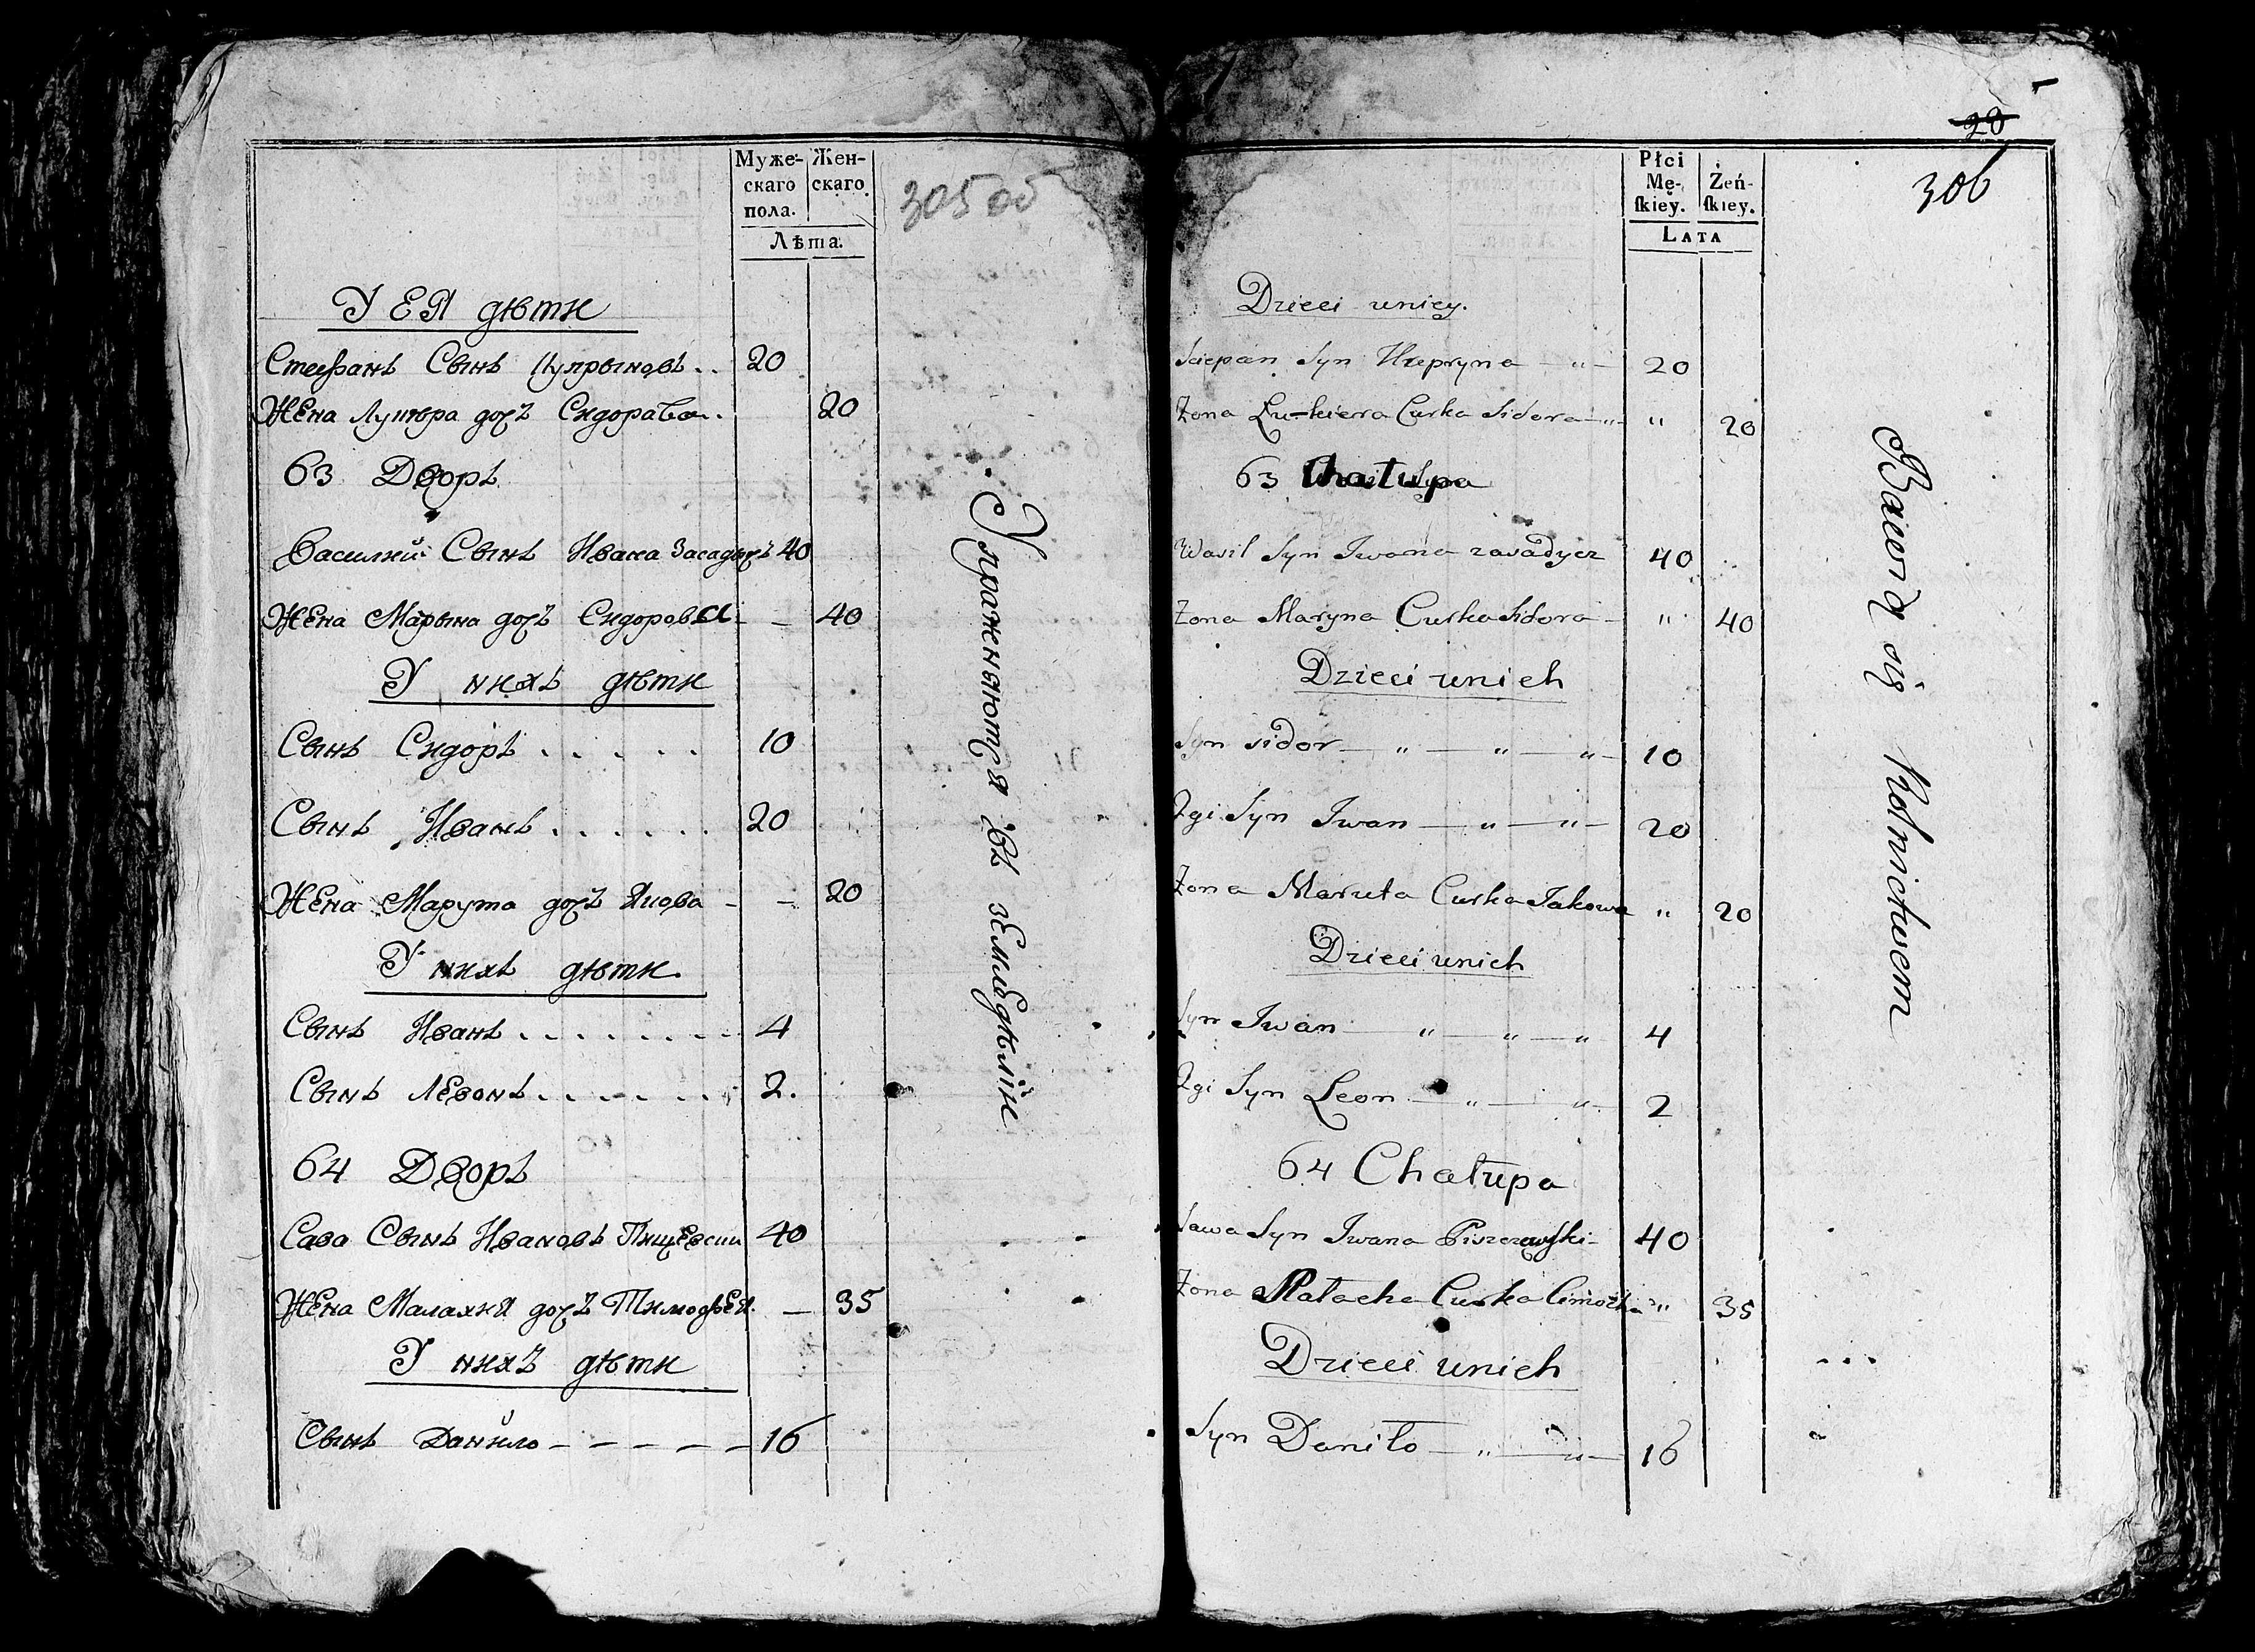 Муже- Жен-
скаго скаго.
пола.
Лѣта.
305 об
У ЕЯ дѣти
Стефанъ Сынъ Цупрыновъ . . 20
Жена Лукѣра дочъ Сидорава . 20
63 Дворъ
Василий Сынъ Ивана Засадычъ 40
Жена Марына дочъ Сидорова - 40
У нихъ дѣти
Сынъ Сидоръ . . . . . 10
Сынъ Иванъ . . . . . . 20
Жена Марута дочъ Якова - - 20
У нихъ дѣти.
Сынъ Иванъ . . . . . . . 4
Сынъ Левонъ . . . . . . 2.
64 Дворъ
Сава Сынъ Ивановъ Пищевски 40
Жена Малахия дочъ Тимофея. — 35
У нихъ дѣти
Сынъ Данило - - - - - 16
Упражняются въ земледѣліи
Płci
Mę- Żeń-
ſkiey. ſkiey.
LATA
20
306
Dzieci uniey.
Sciepan Syn - " - 20
Zona Lu-kierra Curka Sidora - " - " 20
63 Chałupa
Wasil Syn Iwana zasadycz 40
Zona Maryna Curka Sidora - " 40
Dzieci unich
Syn sidor — " — " — " — 10
2gi Syn Iwan — " — " — 20
Zona Maruta Curka Iakowa " 20
Dzieci unich
Syn Iwan — " — " — " 4
2gi Syn Leon — " — " 2
64 Chałupa
Sawa Syn Iwana Piszczewſki - 40
Zona Małacha Curka Cimocha " 35
Dzieci unich
Syn Daniło — " — " — 16
Bawią się Rolnictwem